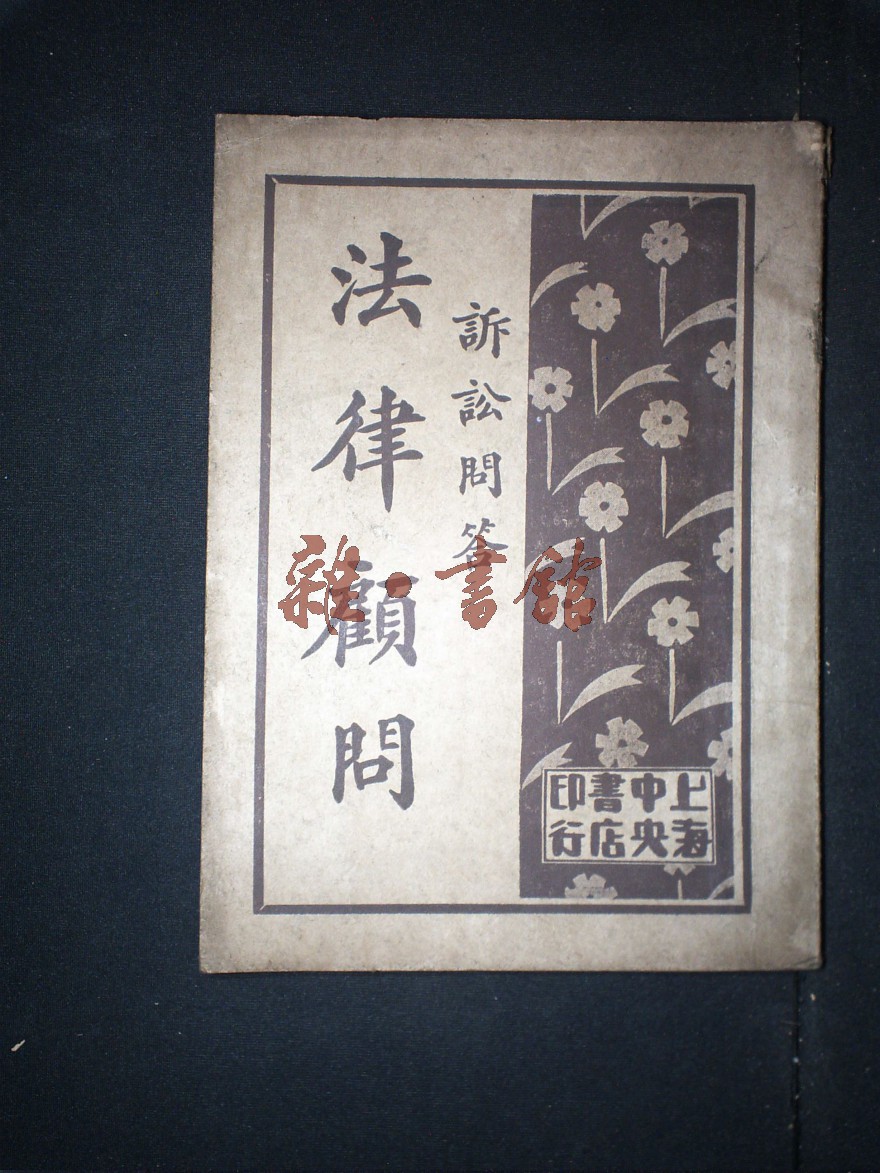 訴訟問答
法律顧問
上海中央書店印行
雜·書館